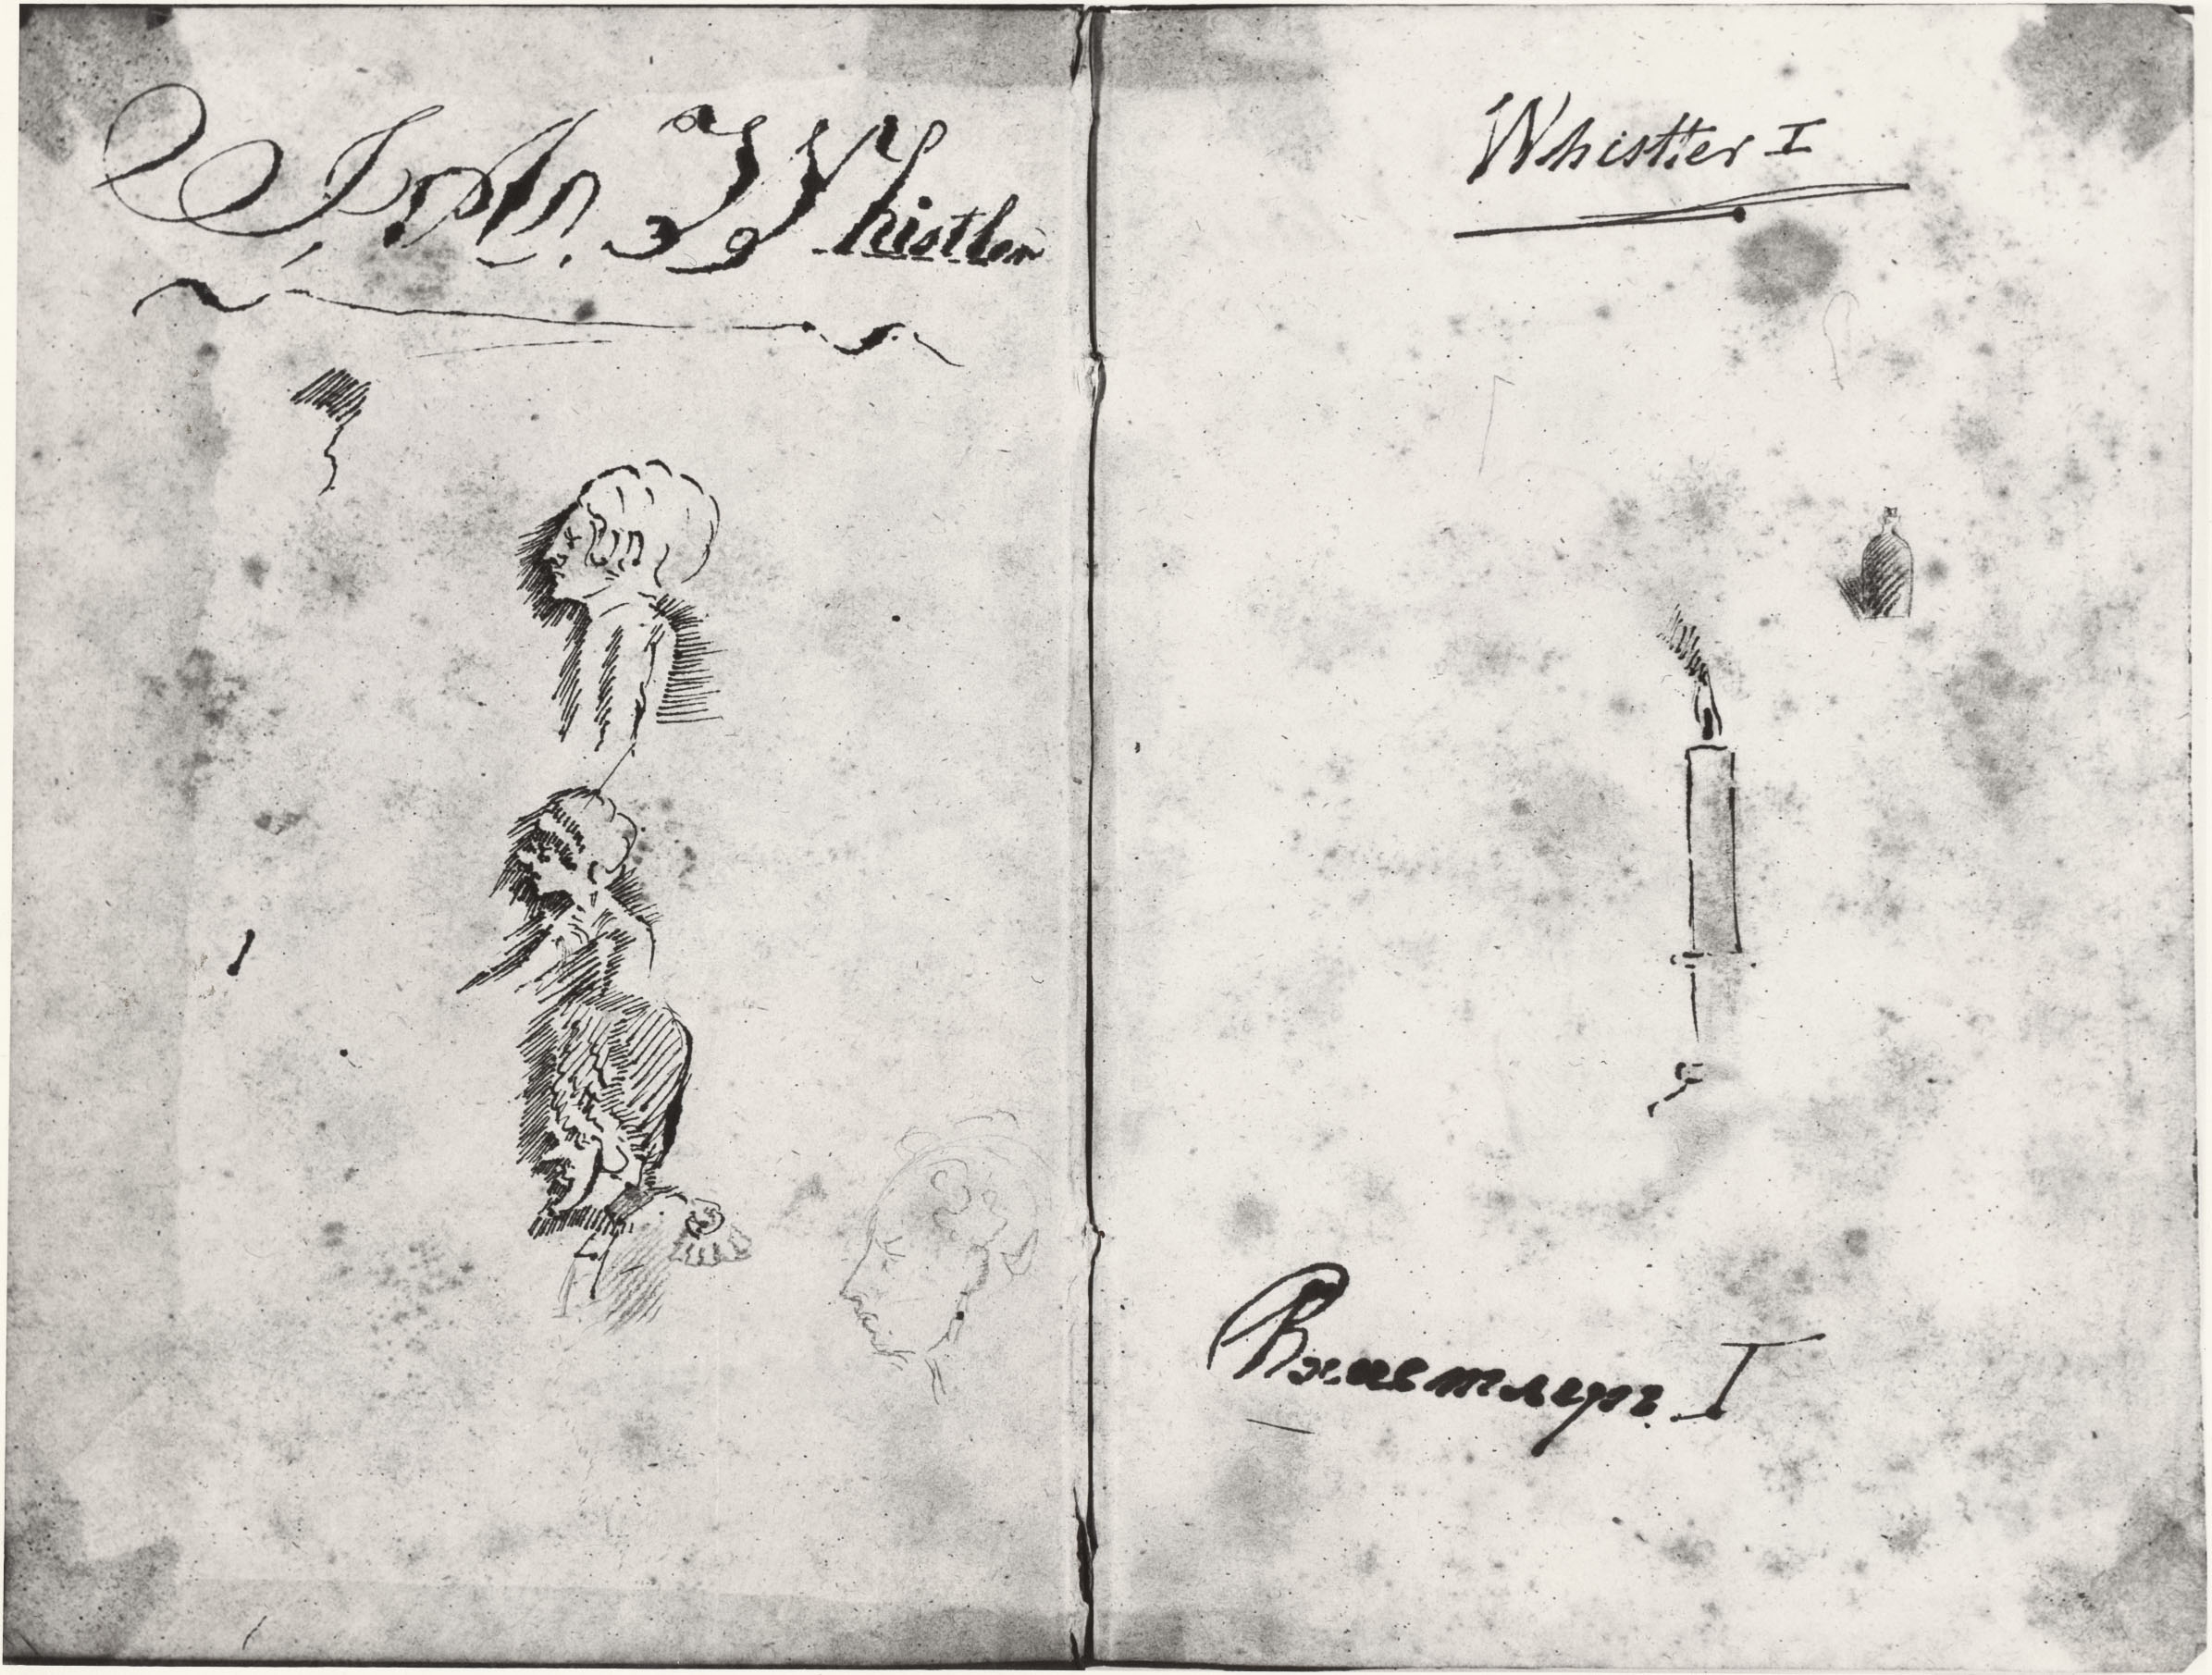 Whistler
Whistler I
Вхистлеръ. I